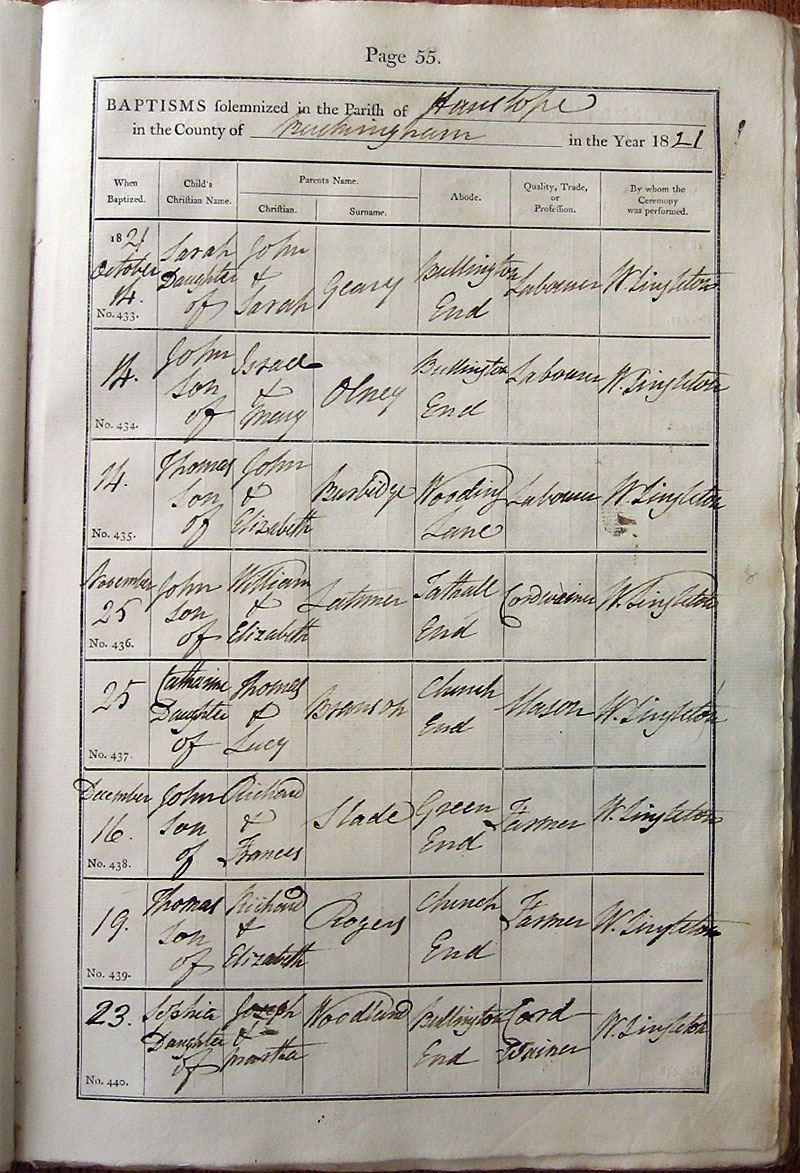 Page 55.
BAPTISMS solemnized in the Parish of Hanslope
in the County of Buckingham in the Year 1821
When Baptized. Child's Christian Name. Parents Name. Christian. Surname. Abode. Quality, Trade, or Profession. By whom the Ceremony was performed.
1821 October 14. No. 433. Sarah Daughter of John & Sarah Geary Bullington End Labourer W. Singleton
14. No. 434. John Son of Israel & Mary Olney Bullington End Labourer W. Singleton
14. No. 435. Thomas Son of John & Elizabeth Burbidge Wooding Lane Labourer W. Singleton
November 25 No. 436. John Son of William & Elizabeth Latimer Tathall End Cordwainer W. Singleton
25 No. 437. Catharine Daughter of Thomas & Lucy Branson Church End Mason W. Singleton
December 16. No. 438. John Son of Richard & Frances Slade Green End Farmer W. Singleton
19. No. 439. Thomas Son of Richard & Elizabeth Rogers Church End Farmer W. Singleton
23. No. 440. Sophia Daughter of Joseph & Martha Woodland Bullington End Cord Wainer W. Singleton